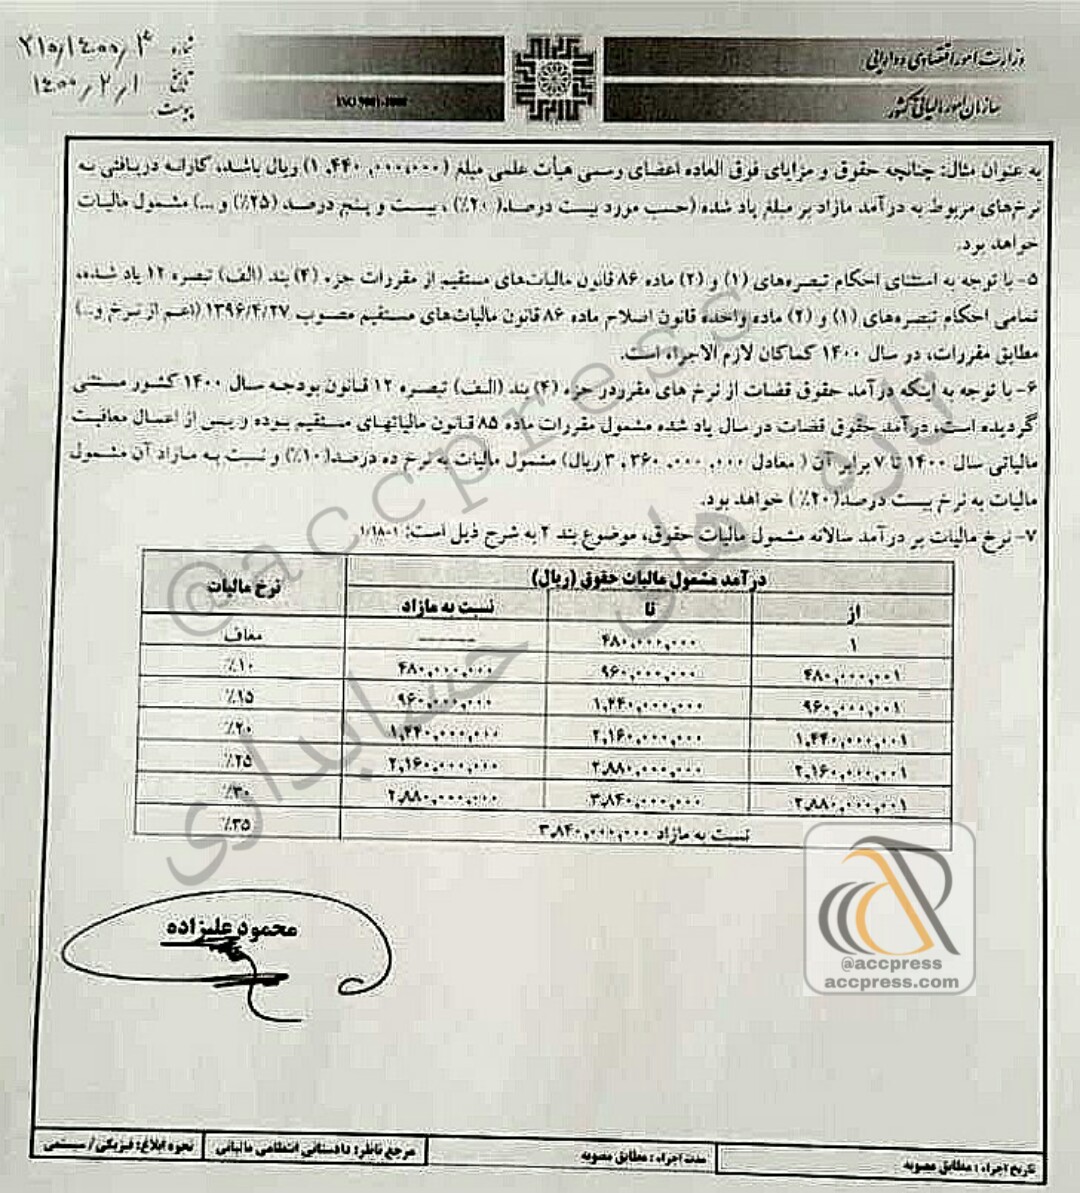 وزارت امور اقتصادی و دارایی
سازمان امور مالیاتی کشور
ISO 9001-2008
شماره ۲۱۰/۱۴۰۰/۴
تاریخ ۱۴۰۰/۲/۱
پیوست
به عنوان مثال: چنانچه حقوق و مزایای فوق العاده اعضای رسمی هیأت علمی مبلغ (۱,۴۴۰,۰۰۰,۰۰۰) ریال باشد، کارانه دریافتی به
نرخ‌های مربوط به درآمد مازاد بر مبلغ یاد شده (حسب مورد بیست درصد(۲۰٪)، بیست و پنج درصد (۲۵٪) و ...) مشمول مالیات
خواهد بود.
۵- با توجه به استثنای احکام تبصره‌های (۱) و (۲) ماده ۸۶ قانون مالیات‌های مستقیم از مقررات جزء (۴) بند (الف) تبصره ۱۲ یاد شده،
تمامی احکام تبصره‌های (۱) و (۲) ماده واحده قانون اصلاح ماده ۸۶ قانون مالیات‌های مستقیم مصوب ۱۳۹۶/۴/۲۷ (اعم از نرخ و...)
مطابق مقررات، در سال ۱۴۰۰ کماکان لازم الاجراء است.
۶- با توجه به اینکه درآمد حقوق قضات از نرخ های مقرر در جزء (۴) بند (الف) تبصره ۱۲ قانون بودجه سال ۱۴۰۰ کشور مستثنی
گردیده است، درآمد حقوق قضات در سال یاد شده مشمول مقررات ماده ۸۵ قانون مالیاتهای مستقیم بوده و پس از اعمال معافیت
مالیاتی سال ۱۴۰۰ تا ۷ برابر آن ( معادل ۳,۳۶۰,۰۰۰,۰۰۰ ریال) مشمول مالیات به نرخ ده درصد(۱۰٪) و نسبت به مازاد آن مشمول
مالیات به نرخ بیست درصد(۲۰٪) خواهد بود.
۷- نرخ مالیات بر درآمد سالانه مشمول مالیات حقوق، موضوع بند ۲ به شرح ذیل است:
درآمد مشمول مالیات حقوق (ریال) نرخ مالیات
از تا نسبت به مازاد
۱ ۴۸۰,۰۰۰,۰۰۰ ------- معاف
۴۸۰,۰۰۰,۰۰۱ ۹۶۰,۰۰۰,۰۰۰ ۴۸۰,۰۰۰,۰۰۰ ۱۰٪
۹۶۰,۰۰۰,۰۰۱ ۱,۴۴۰,۰۰۰,۰۰۰ ۹۶۰,۰۰۰,۰۰۰ ۱۵٪
۱,۴۴۰,۰۰۰,۰۰۱ ۲,۱۶۰,۰۰۰,۰۰۰ ۱,۴۴۰,۰۰۰,۰۰۰ ۲۰٪
۲,۱۶۰,۰۰۰,۰۰۱ ۲,۸۸۰,۰۰۰,۰۰۰ ۲,۱۶۰,۰۰۰,۰۰۰ ۲۵٪
۲,۸۸۰,۰۰۰,۰۰۱ ۳,۸۴۰,۰۰۰,۰۰۰ ۲,۸۸۰,۰۰۰,۰۰۰ ۳۰٪
نسبت به مازاد ۳,۸۴۰,۰۰۰,۰۰۰ ۳۵٪
محمود علیزاده
@accpress
تازه های حسابداری
@accpress
accpress.com
تاریخ اجراء : مطابق مصوبه
مدت اجراء : مطابق مصوبه
مرجع ناظر: دادستانی انتظامی مالیاتی
نحوه ابلاغ: فیزیکی/ سیستمی